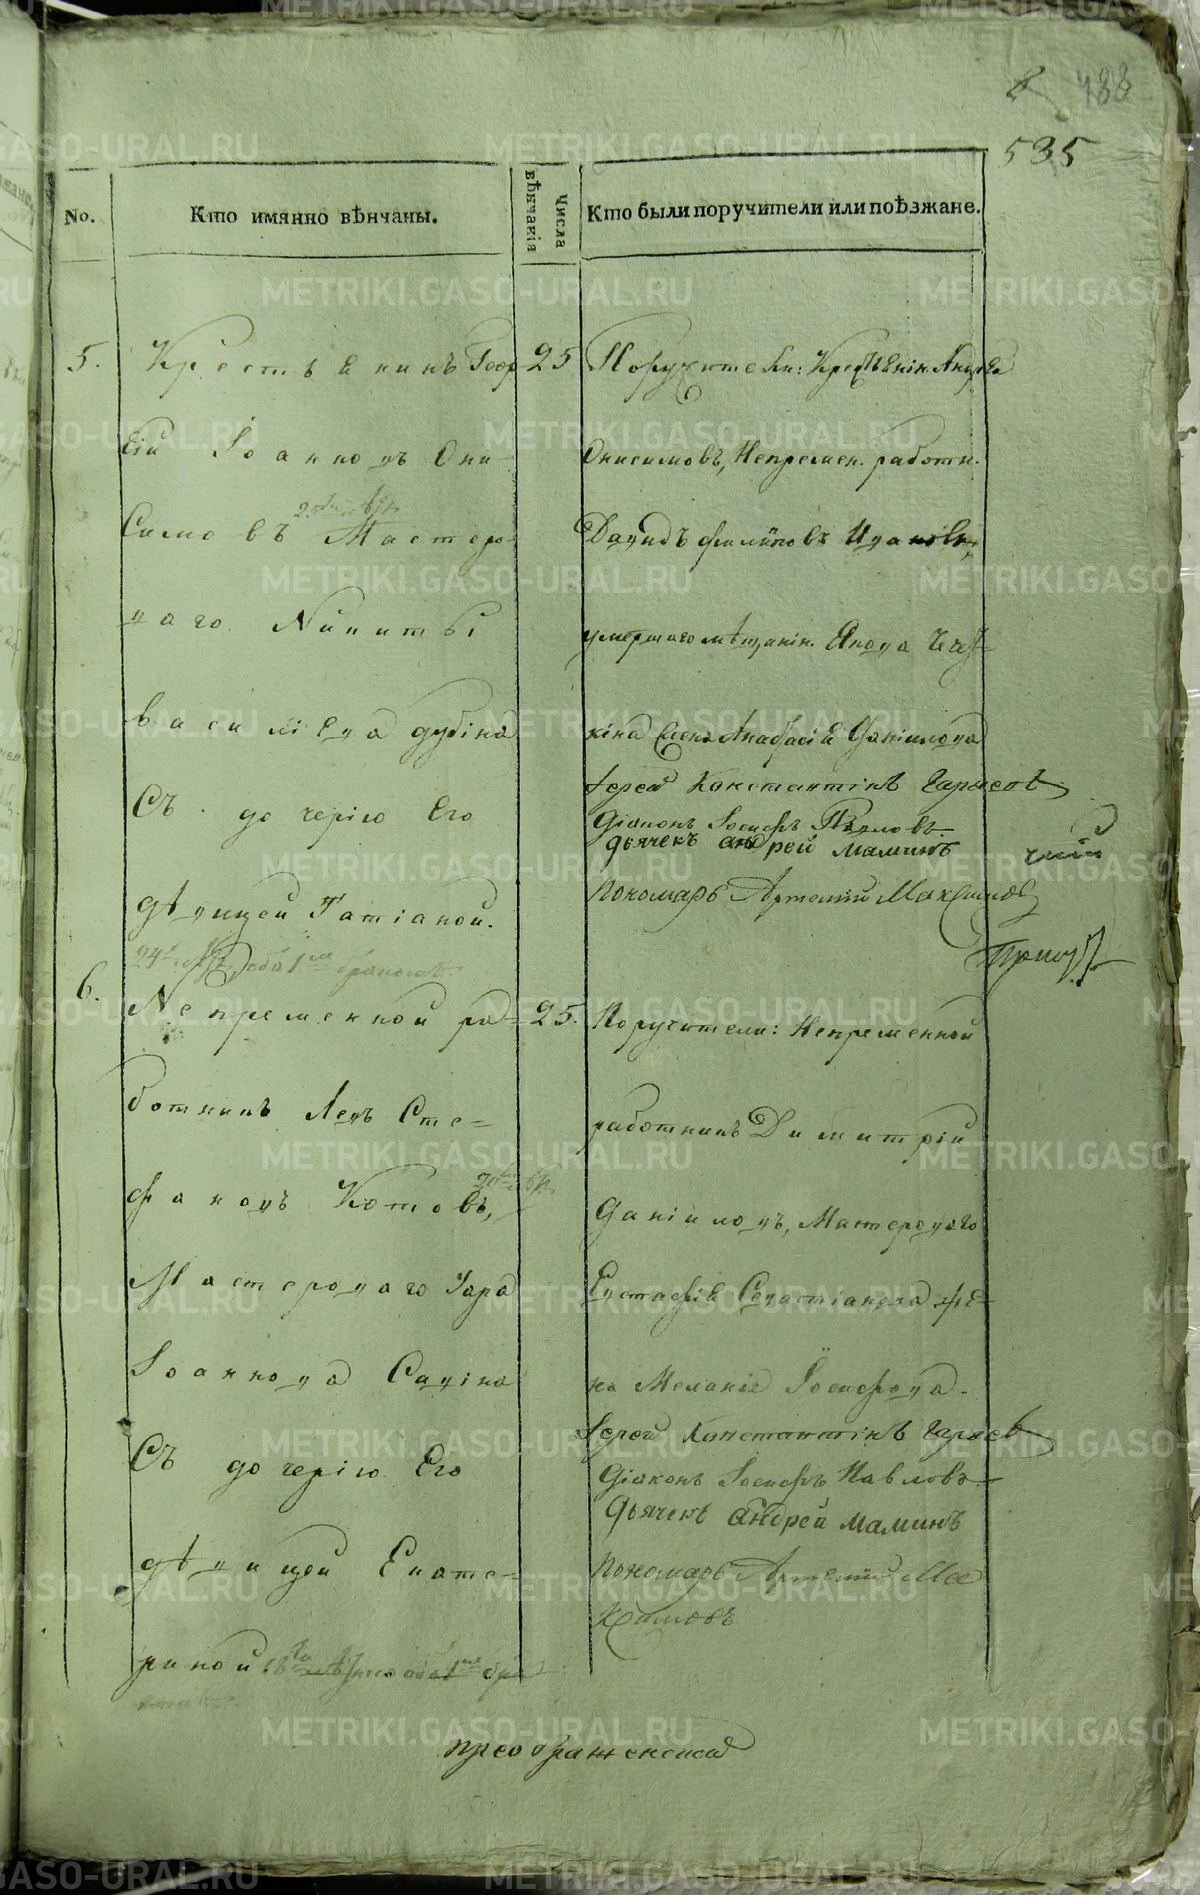 488
535
No.
Кто имянно вѣнчаны.
Числа вѣнчанія
Кто были поручители или поѣзжане.
5.
Крестьянинъ Геор
гій Іоанновъ Они
симовъ Мастеро
ваго Никиты
Василіева Дубина
Съ дочерію Его
дѣвицей Татіаной.
25
Поручители: Крестьянін. Андрей
Онисимовъ, Непремен. работн.
Давидъ филиповъ Ивановъ,
умершаго мѣщанін.
Данiилова
Іерей Константінъ Гаряевъ
Діаконъ Іосифъ Павловъ
дьячекъ андрей маминъ
пономарь Артемій Максимовъ
6.
Непременной ра=
ботникъ Левъ Сте=
фановъ Котовъ,
Мастероваго
Іоаннова Савіна
Съ дочерію Его
дѣвицей Екате=
риной
25.
Поручители: Непременной
работникъ Димитрій
Даніиловъ, Мастероваго
Евстафія Севастіанова же=
на Меланія Іосифова.
Іерей Константінъ Гаряевъ
Діаконъ Іосифъ Павловъ
Дьячекъ андрей маминъ
пономарь Артемій Ма
ксимовъ
преображенска
METRIKI.GASO-URAL.RU